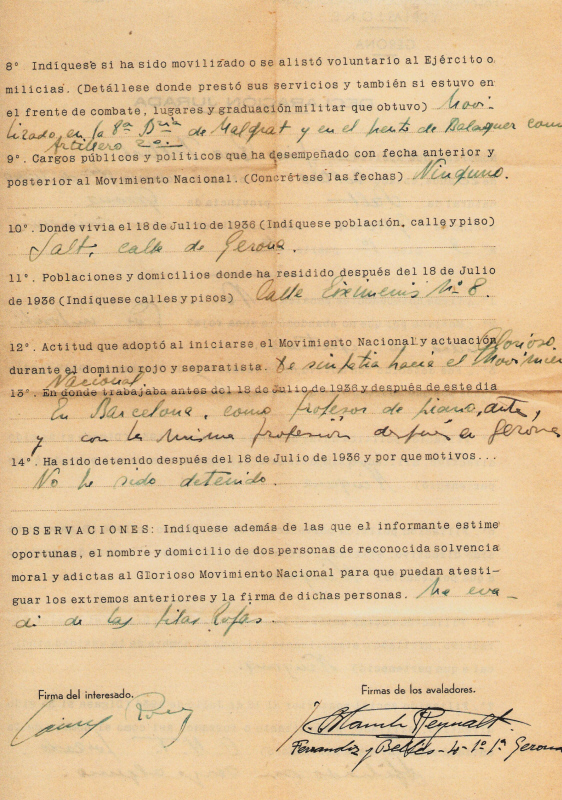 8º Indíquese si ha sido movilizado o se alistó voluntario al Ejército o
milicias. (Detállese donde prestó sus servicios y también si estuvo en
el frente de combate, lugares y graduación militar que obtuvo) Movi-
lizado, en la 8ª Bría de Malgrat y en el frente de Balaguer como
Artillero 2º
9º. Cargos públicos y políticos que ha desempeñado con fecha anterior y
posterior al Movimiento Nacional. (Concrétese las fechas) Ninguno.
10º. Donde vivía el 18 de Julio de 1936 (Indíquese población, calle y piso)
Salt, calle de Gerona.
11º. Poblaciones y domicilios donde ha residido después del 18 de Julio
de 1936 (Indíquese calles y pisos) Calle Eximenis Nº 8.
12º. Actitud que adoptó al iniciarse el Movimiento Nacional y actuación
durante el dominio rojo y separatista. De simpatia hacia el Glorioso Movimien
Nacional
13º. En donde trabajaba antes del 18 de Julio de 1936 y después de este día
En Barcelona, como profesor de piano, antes,
y con la misma profesión después en Gerona
14º. Ha sido detenido después del 18 de Julio de 1936 y por que motivos...
No he sido detenido.
OBSERVACIONES: Indíquese además de las que el informante estime
oportunas, el nombre y domicilio de dos personas de reconocida solvencia
moral y adictas al Glorioso Movimiento Nacional para que puedan atesti-
guar los extremos anteriores y la firma de dichas personas. Me eva-
di de las filas Rojas.
Firma del interesado.
Firmas de los avaladores.
Ferrandiz y Bellés - 4 - 1º 1ª Gerona